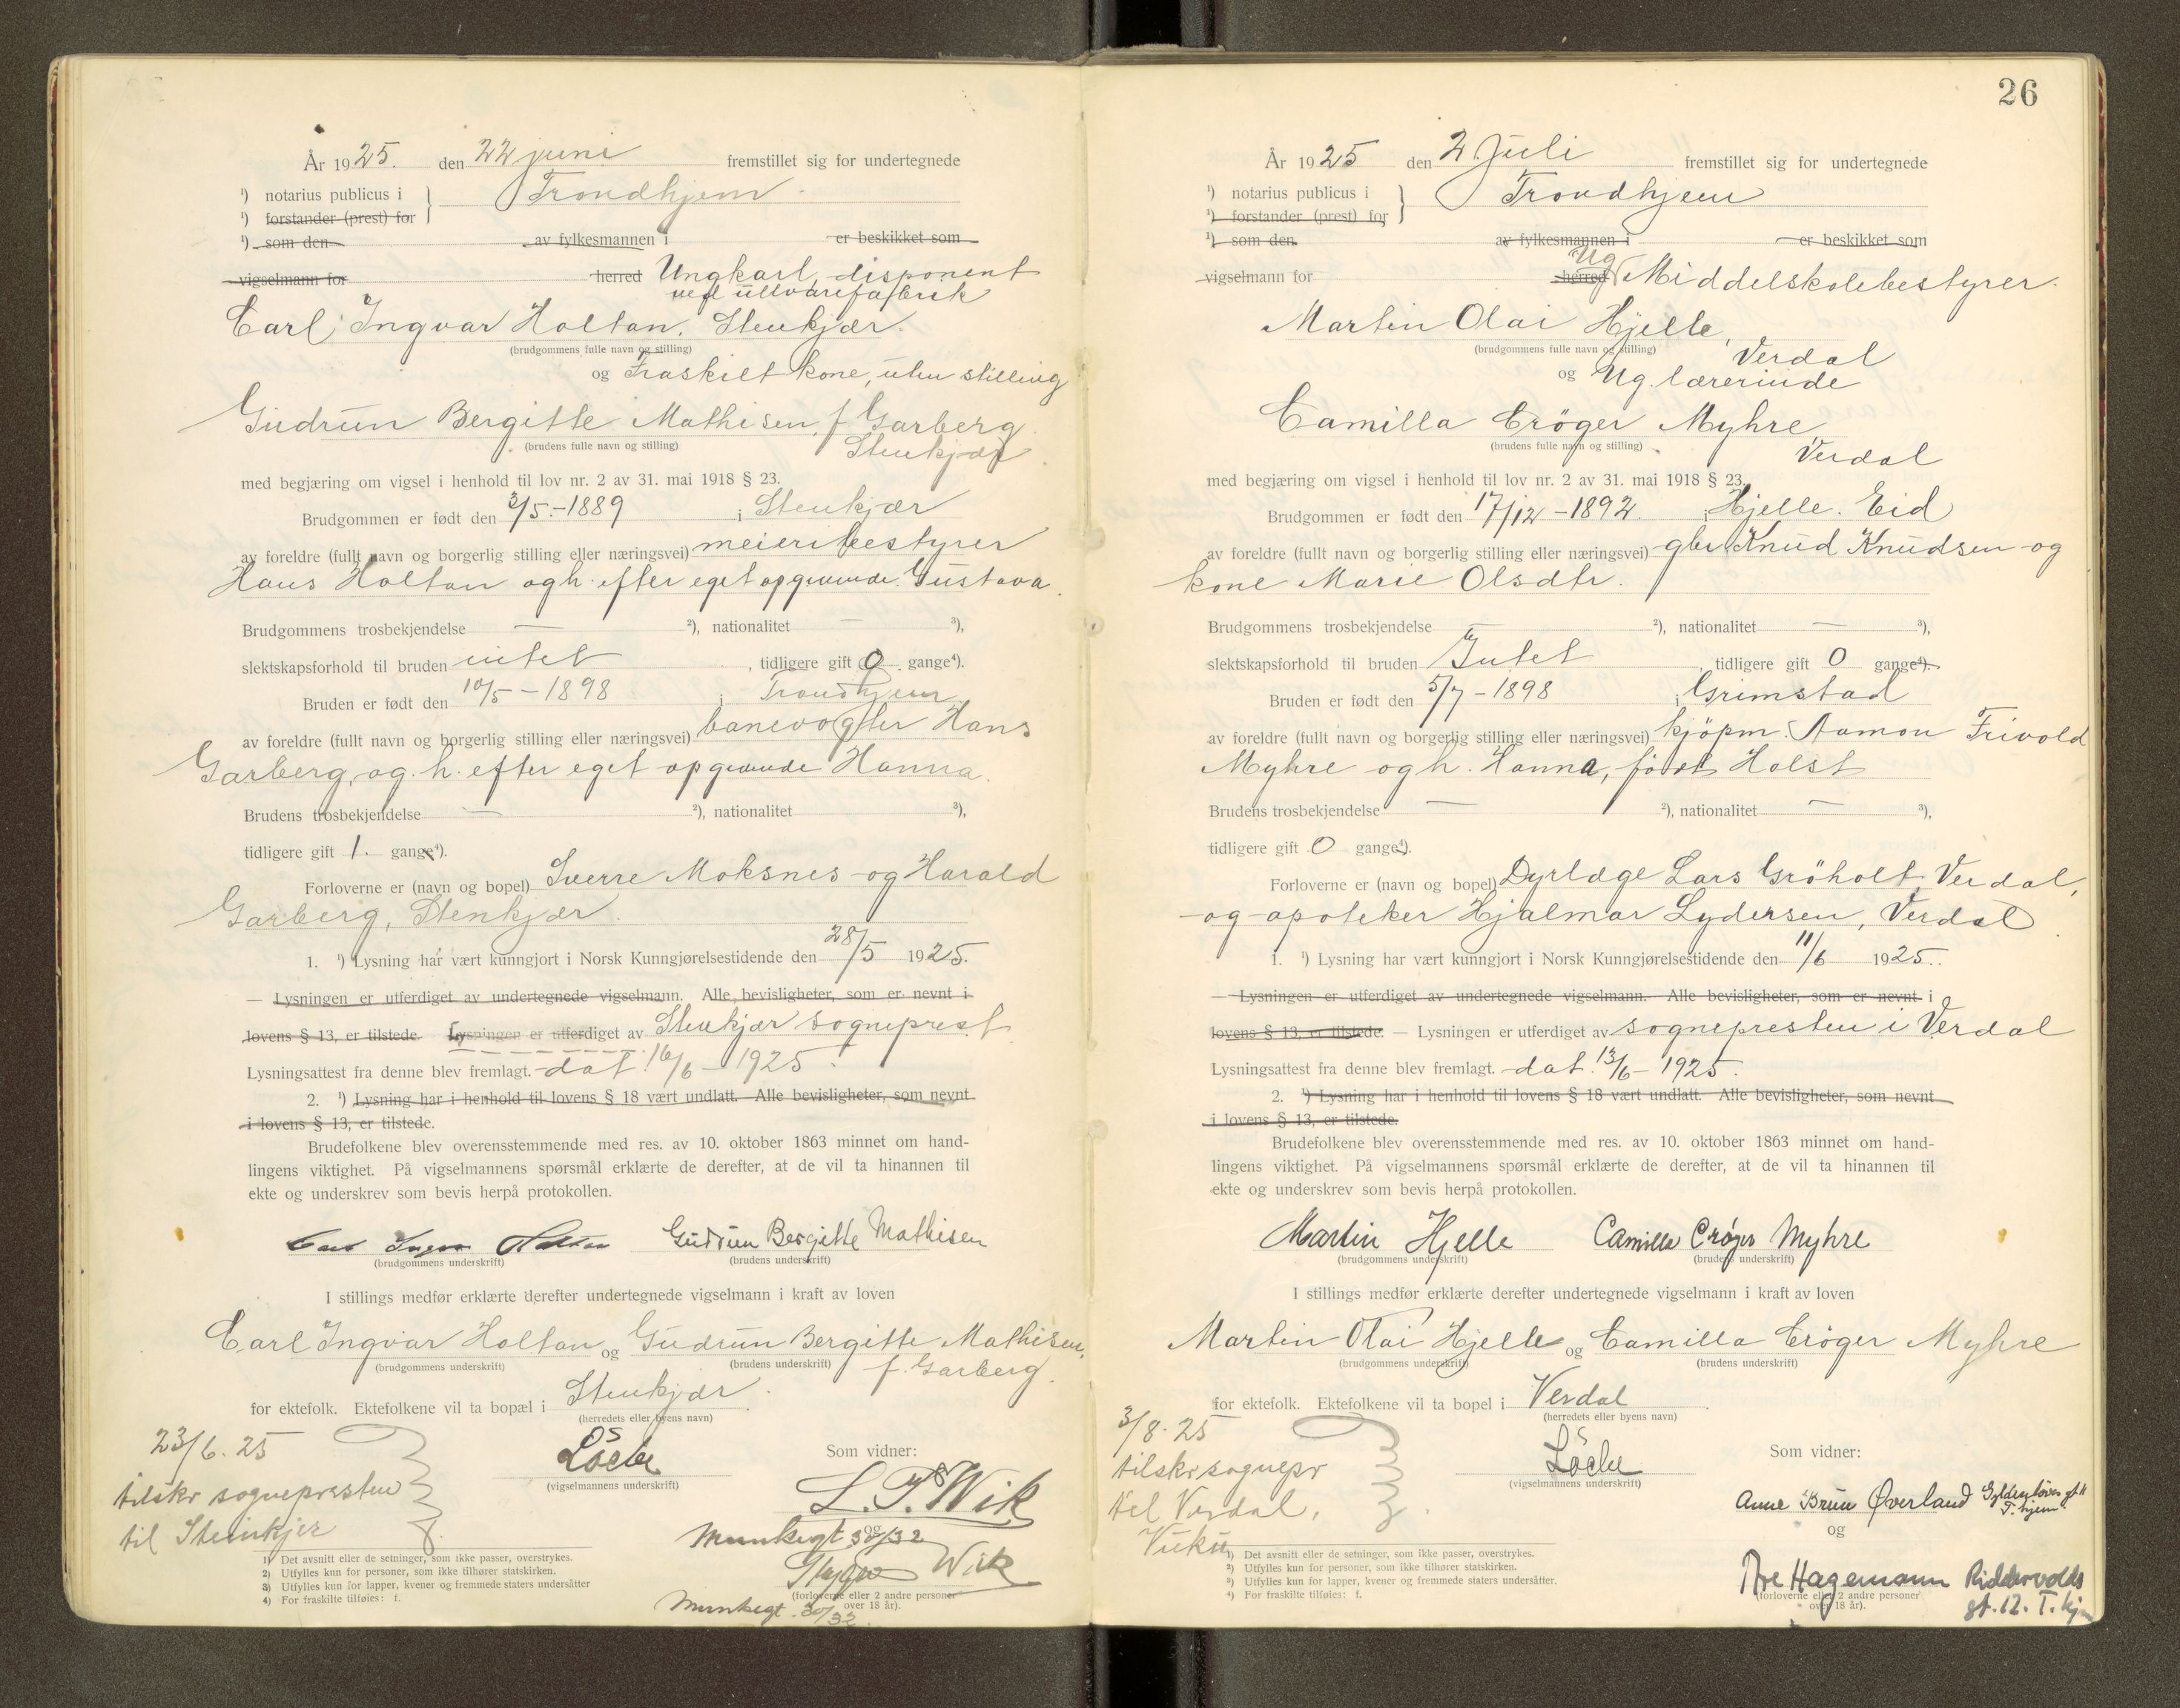 År 1925. den 22 juni fremstillet sig for undertegnede
¹) notarius publicus i } Trondhjem
¹) forstander (prest) for
¹) som den av fylkesmannen i er beskikket som
vigselmann for herred Ungkarl, disponent
ved uldvarefabrik
Carl Ingvar Holtan, Stenkjær.
(brudgommens fulle navn og stilling)
og Fraskilt kone, uten stilling
Gudrun Bergitte Mathisen, f. Garberg
(brudens fulle navn og stilling) Stenkjær
med begjæring om vigsel i henhold til lov nr. 2 av 31. mai 1918 § 23.
Brudgommen er født den 3/5.-1889 i Stenkjær
av foreldre (fullt navn og borgerlig stilling eller næringsvei) meieribestyrer
Hans Holtan og h. efter eget opgivende Gustava.
Brudgommens trosbekjendelse — ²), nationalitet — ³),
slektskapsforhold til bruden intet, tidligere gift 0 gange⁴).
Bruden er født den 10/5-1898 i Trondhjem
av foreldre (fullt navn og borgerlig stilling eller næringsvei) banevogter Hans
Garberg, og h. efter eget opgivende Hanna.
Brudens trosbekjendelse — ²), nationalitet ³),
tidligere gift 1. gange⁴).
Forloverne er (navn og bopel) Sverre Moksnes og Harald
Garberg, Stenkjær.
1. ¹) Lysning har vært kunngjort i Norsk Kunngjørelsestidende den 28/5 1925.
— Lysningen er utferdiget av undertegnede vigselmann. Alle bevisligheter, som er nevnt i
lovens § 13, er tilstede. Lysningen er utferdiget av Stenkjær sogneprest
Lysningsattest fra denne blev fremlagt. dat. 16/6-1925.
2. ¹) Lysning har i henhold til lovens § 18 vært undlatt. Alle bevisligheter, som nevnt
i lovens § 13, er tilstede.
Brudefolkene blev overensstemmende med res. av 10. oktober 1863 minnet om hand-
lingens viktighet. På vigselmannens spørsmål erklærte de derefter, at de vil ta hinannen til
ekte og underskrev som bevis herpå protokollen.
Carl Ingvar Holtan Gudrun Bergitte Mathisen
(brudgommens underskrift) (brudens underskrift)
I stillings medfør erklærte derefter undertegnede vigselmann i kraft av loven
Carl Ingvar Holtan og Gudrun Bergitte Mathisen,
(brudgommens underskrift) (brudens underskrift) f. Garberg.
for ektefolk. Ektefolkene vil ta bopæl i Stenkjær.
(herredets eller byens navn)
23/6.25
tilskr sognepresten
til Steinkjer
(vigselmannens underskrift)
Som vidner:
L. P. Wik
Munkegt 30/32
og
Wik
(forloverne eller 2 andre personer
over 18 år).
Munkegt. 30/32.
1) Det avsnitt eller de setninger, som ikke passer, overstrykes.
2) Utfylles kun for personer, som ikke tilhører statskirken.
3) Utfylles kun for lapper, kvener og fremmede staters undersåtter
4) For fraskilte tilføies: f.
26
År 1925 den 2 Juli fremstillet sig for undertegnede
¹) notarius publicus i } Trondhjem
¹) forstander (prest) for
¹) som den av fylkesmannen i er beskikket som
vigselmann for herred Ug Middelskolebestyrer
Martin Olai Hjelle,
(brudgommens fulle navn og stilling) Verdal
og Ug. lærerinde
Camilla Cröger Myhre
(brudens fulle navn og stilling) Verdal
med begjæring om vigsel i henhold til lov nr. 2 av 31. mai 1918 § 23.
Brudgommen er født den 17/12-1892. i Hjelle. Eid
av foreldre (fullt navn og borgerlig stilling eller næringsvei) gbr Knud Knudsen og
kone Marie Olsdtr.
Brudgommens trosbekjendelse — ²), nationalitet — ³),
slektskapsforhold til bruden Intet, tidligere gift 0 gange⁴).
Bruden er født den 5/7-1898 i Grimstad
av foreldre (fullt navn og borgerlig stilling eller næringsvei) kjöpm. Aamon Frivold
Myhre og h. Hanna, født Holst
Brudens trosbekjendelse — ²), nationalitet — ³),
tidligere gift 0 gange⁴).
Forloverne er (navn og bopel) Dyrlæge Lars Gröholt, Verdal,
og apoteker Hjalmar Lydersen, Verdal
1. ¹) Lysning har vært kunngjort i Norsk Kunngjørelsestidende den 11/6 1925.
— Lysningen er utferdiget av undertegnede vigselmann. Alle bevisligheter, som er nevnt i
lovens § 13, er tilstede. — Lysningen er utferdiget av sognepresten i Verdal
Lysningsattest fra denne blev fremlagt. dat. 13/6-1925.
2. ¹) Lysning har i henhold til lovens § 18 vært undlatt. Alle bevisligheter, som nevnt
i lovens § 13, er tilstede.
Brudefolkene blev overensstemmende med res. av 10. oktober 1863 minnet om hand-
lingens viktighet. På vigselmannens spørsmål erklærte de derefter, at de vil ta hinannen til
ekte og underskrev som bevis herpå protokollen.
Martin Hjelle Camilla Crøger Myhre
(brudgommens underskrift) (brudens underskrift)
I stillings medfør erklærte derefter undertegnede vigselmann i kraft av loven
Martin Olai Hjelle og Camilla Cröger Myhre
(brudgommens underskrift) (brudens underskrift)
for ektefolk. Ektefolkene vil ta bopel i Verdal
(herredets eller byens navn)
3/8.25
tilskr sognepr
til Verdal,
Vuku
(vigselmannens underskrift)
Som vidner:
Anne Brun Øverland Gyldenløves gt 11
T.hjem.
og
Hagemann Riddervolds
gt. 12. T. hjm
(forloverne eller 2 andre personer
over 18 år).
¹) Det avsnitt eller de setninger, som ikke passer, overstrykes.
²) Utfylles kun for personer, som ikke tilhører statskirken.
³) Utfylles kun for lapper, kvener og fremmede staters undersåtter.
⁴) For fraskilte tilføies: f.